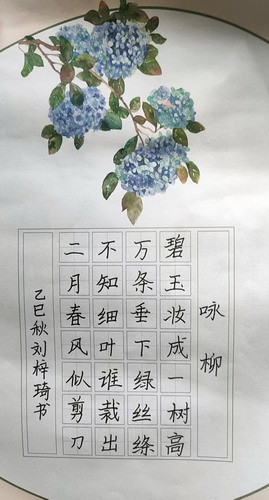 咏柳
碧玉妆成一树高
万条垂下绿丝绦
不知细叶谁裁出
二月春风似剪刀
乙巳秋刘梓琦书